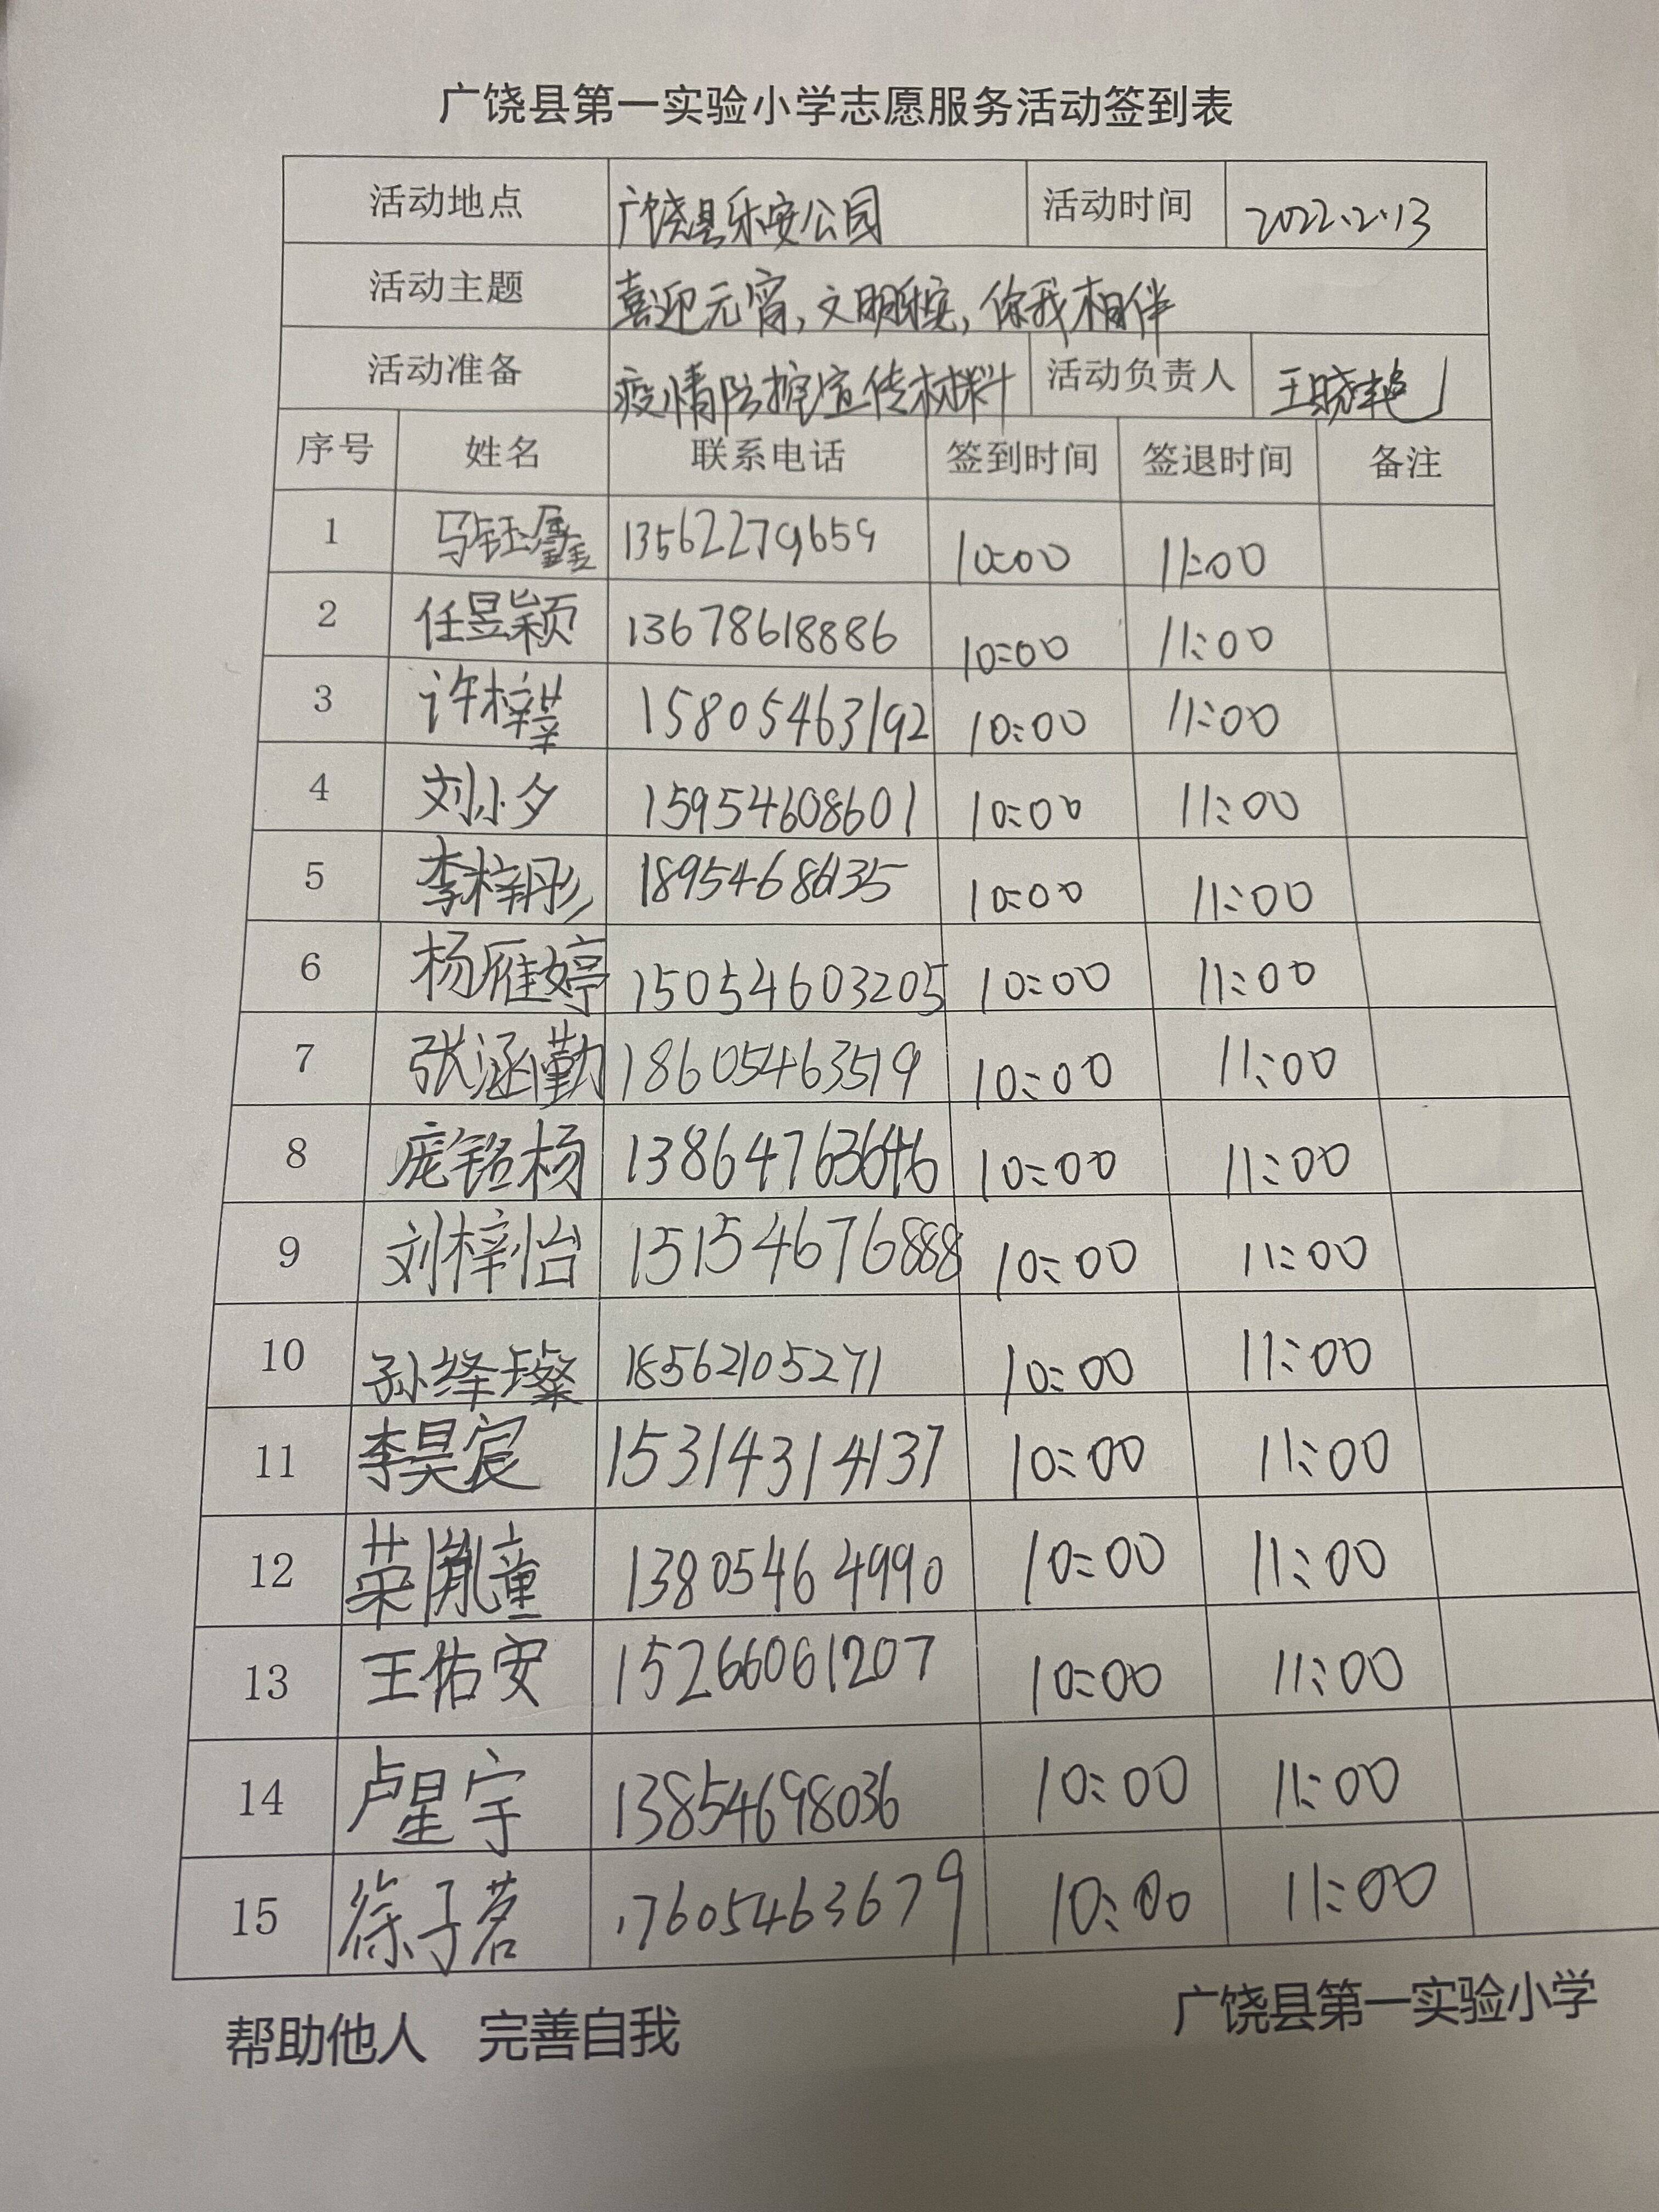 广饶县第一实验小学志愿服务活动签到表
活动地点 广饶县乐安公园 活动时间 2022.2.13
活动主题 喜迎元宵,文明乐安,你我相伴
活动准备 疫情防控宣传材料 活动负责人 王晓艳
序号 姓名 联系电话 签到时间 签退时间 备注
1 马钰鑫 13562279659 10:00 11:00
2 任昱颖 13678618886 10:00 11:00
3 许梓莘 15805463192 10:00 11:00
4 刘小夕 15954608601 10:00 11:00
5 李梓彤 18954686135 10:00 11:00
6 杨雁婷 15054603205 10:00 11:00
7 张涵勤 18605463519 10:00 11:00
8 庞铭杨 13864763646 10:00 11:00
9 刘梓怡 15154676888 10:00 11:00
10 孙绎璨 18562105271 10:00 11:00
11 李昊宸 15314314137 10:00 11:00
12 荣胤童 13805464990 10:00 11:00
13 王佑安 15266061207 10:00 11:00
14 卢星宇 13854698036 10:00 11:00
15 徐子茗 17605463679 10:00 11:00
帮助他人 完善自我 广饶县第一实验小学